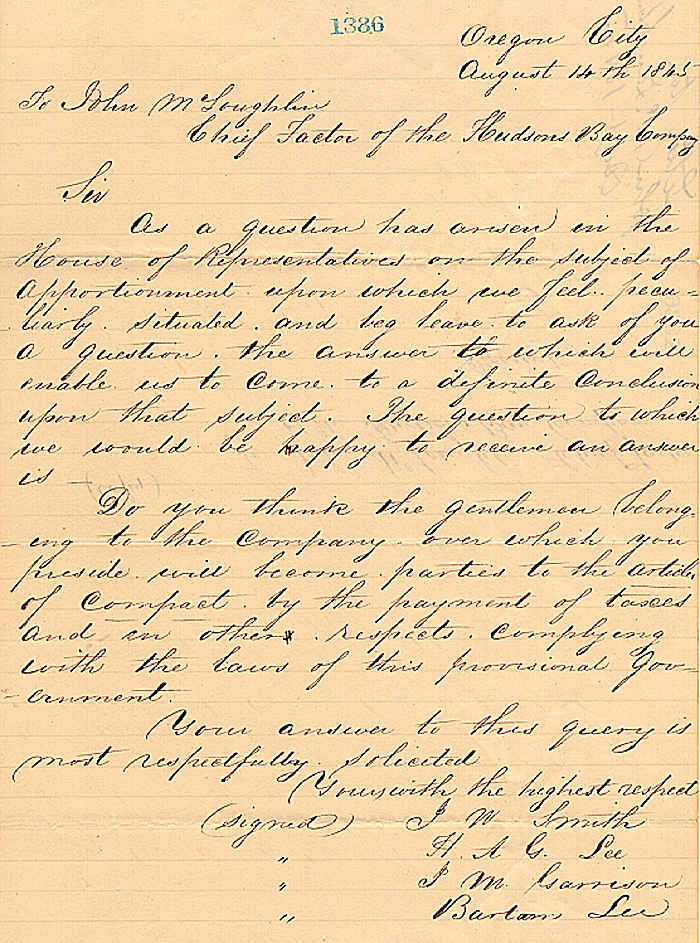 1386
Oregon City
August 14th 1845
To John McLoughlin
Chief Factor of the Hudsons Bay Company
Sir
As a question has arisen in the
House of Representatives on the subject of
apportionment upon which we feel pecu-
liarly situated and beg leave to ask of you
a question the answer to which will
enable us to come to a definite conclusion
upon that subject. The question to which
we would be happy to receive an answer
is —
Do you think the gentlemen belong-
-ing to the Company over which you
preside will become parties to the articles
of Compact by the payment of taxes
and in other respects complying
with the laws of this provisional Gov-
-ernment.
Your answer to this query is
most respectfully solicited
Yours with the highest respect
(signed) J W Smith
" H. A G. Lee
" J M. Garrison
" Bartom Lee